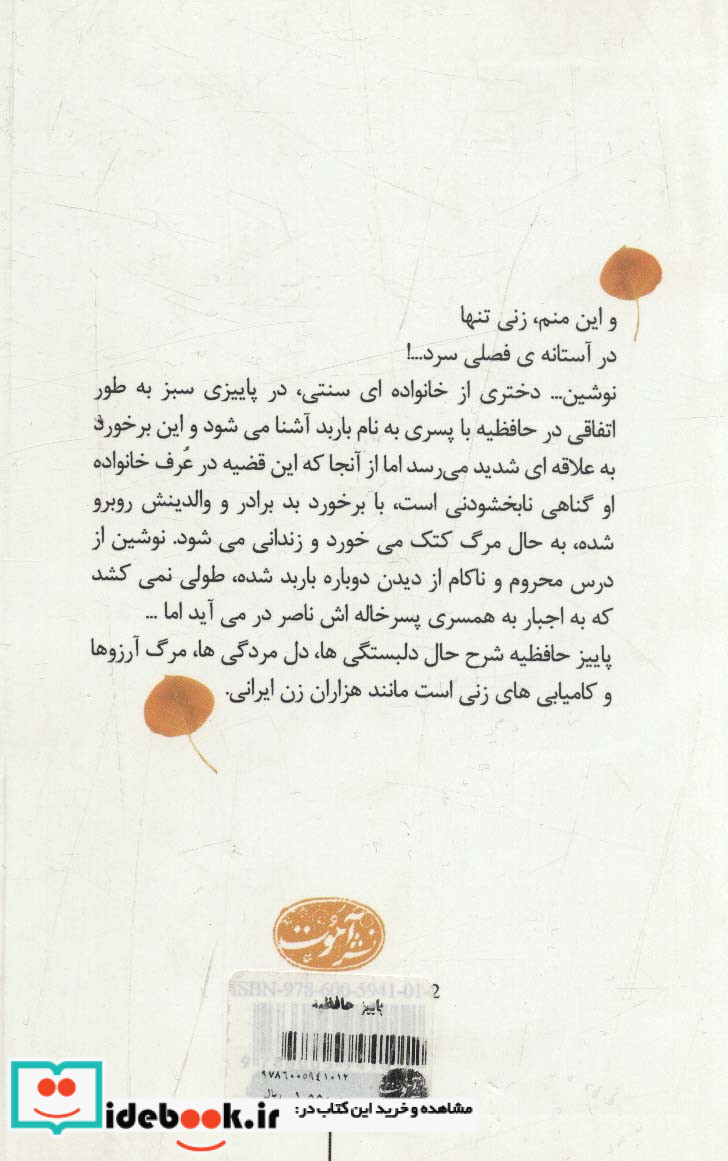 و این منم، زنی تنها
در آستانه ی فصلی سرد...!
نوشین... دختری از خانواده ای سنتی، در پاییزی سبز به طور
اتفاقی در حافظیه با پسری به نام باربد آشنا می شود و این برخورد
به علاقه ای شدید می‌رسد اما از آنجا که این قضیه در عُرف خانواده
او گناهی نابخشودنی است، با برخورد بد برادر و والدینش روبرو
شده، به حال مرگ کتک می خورد و زندانی می شود. نوشین از
درس محروم و ناکام از دیدن دوباره باربد شده، طولی نمی کشد
که به اجبار به همسری پسرخاله اش ناصر در می آید اما ...
پاییز حافظیه شرح حال دلبستگی ها، دل مردگی ها، مرگ آرزوها
و کامیابی های زنی است مانند هزاران زن ایرانی.
نشر آموت
ISBN-978-600-5941-01-2
پاییز حافظیه
۹۷۸۶۰۰۵۹۴۱۰۱۲
ریال
مشاهده و خرید این کتاب در:
idebook.ir